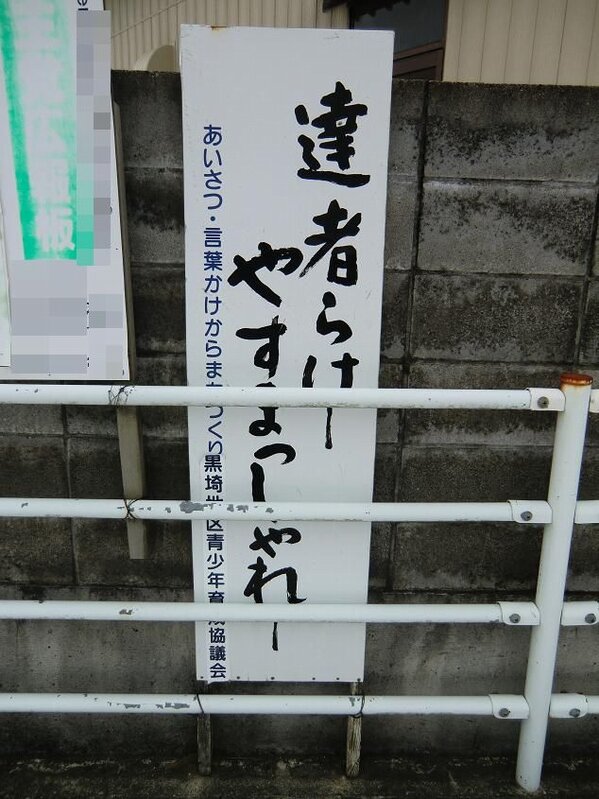 達者らけー
やすまっしゃれー
あいさつ・言葉かけからまちづくり黒埼地区青少年育成協議会
板